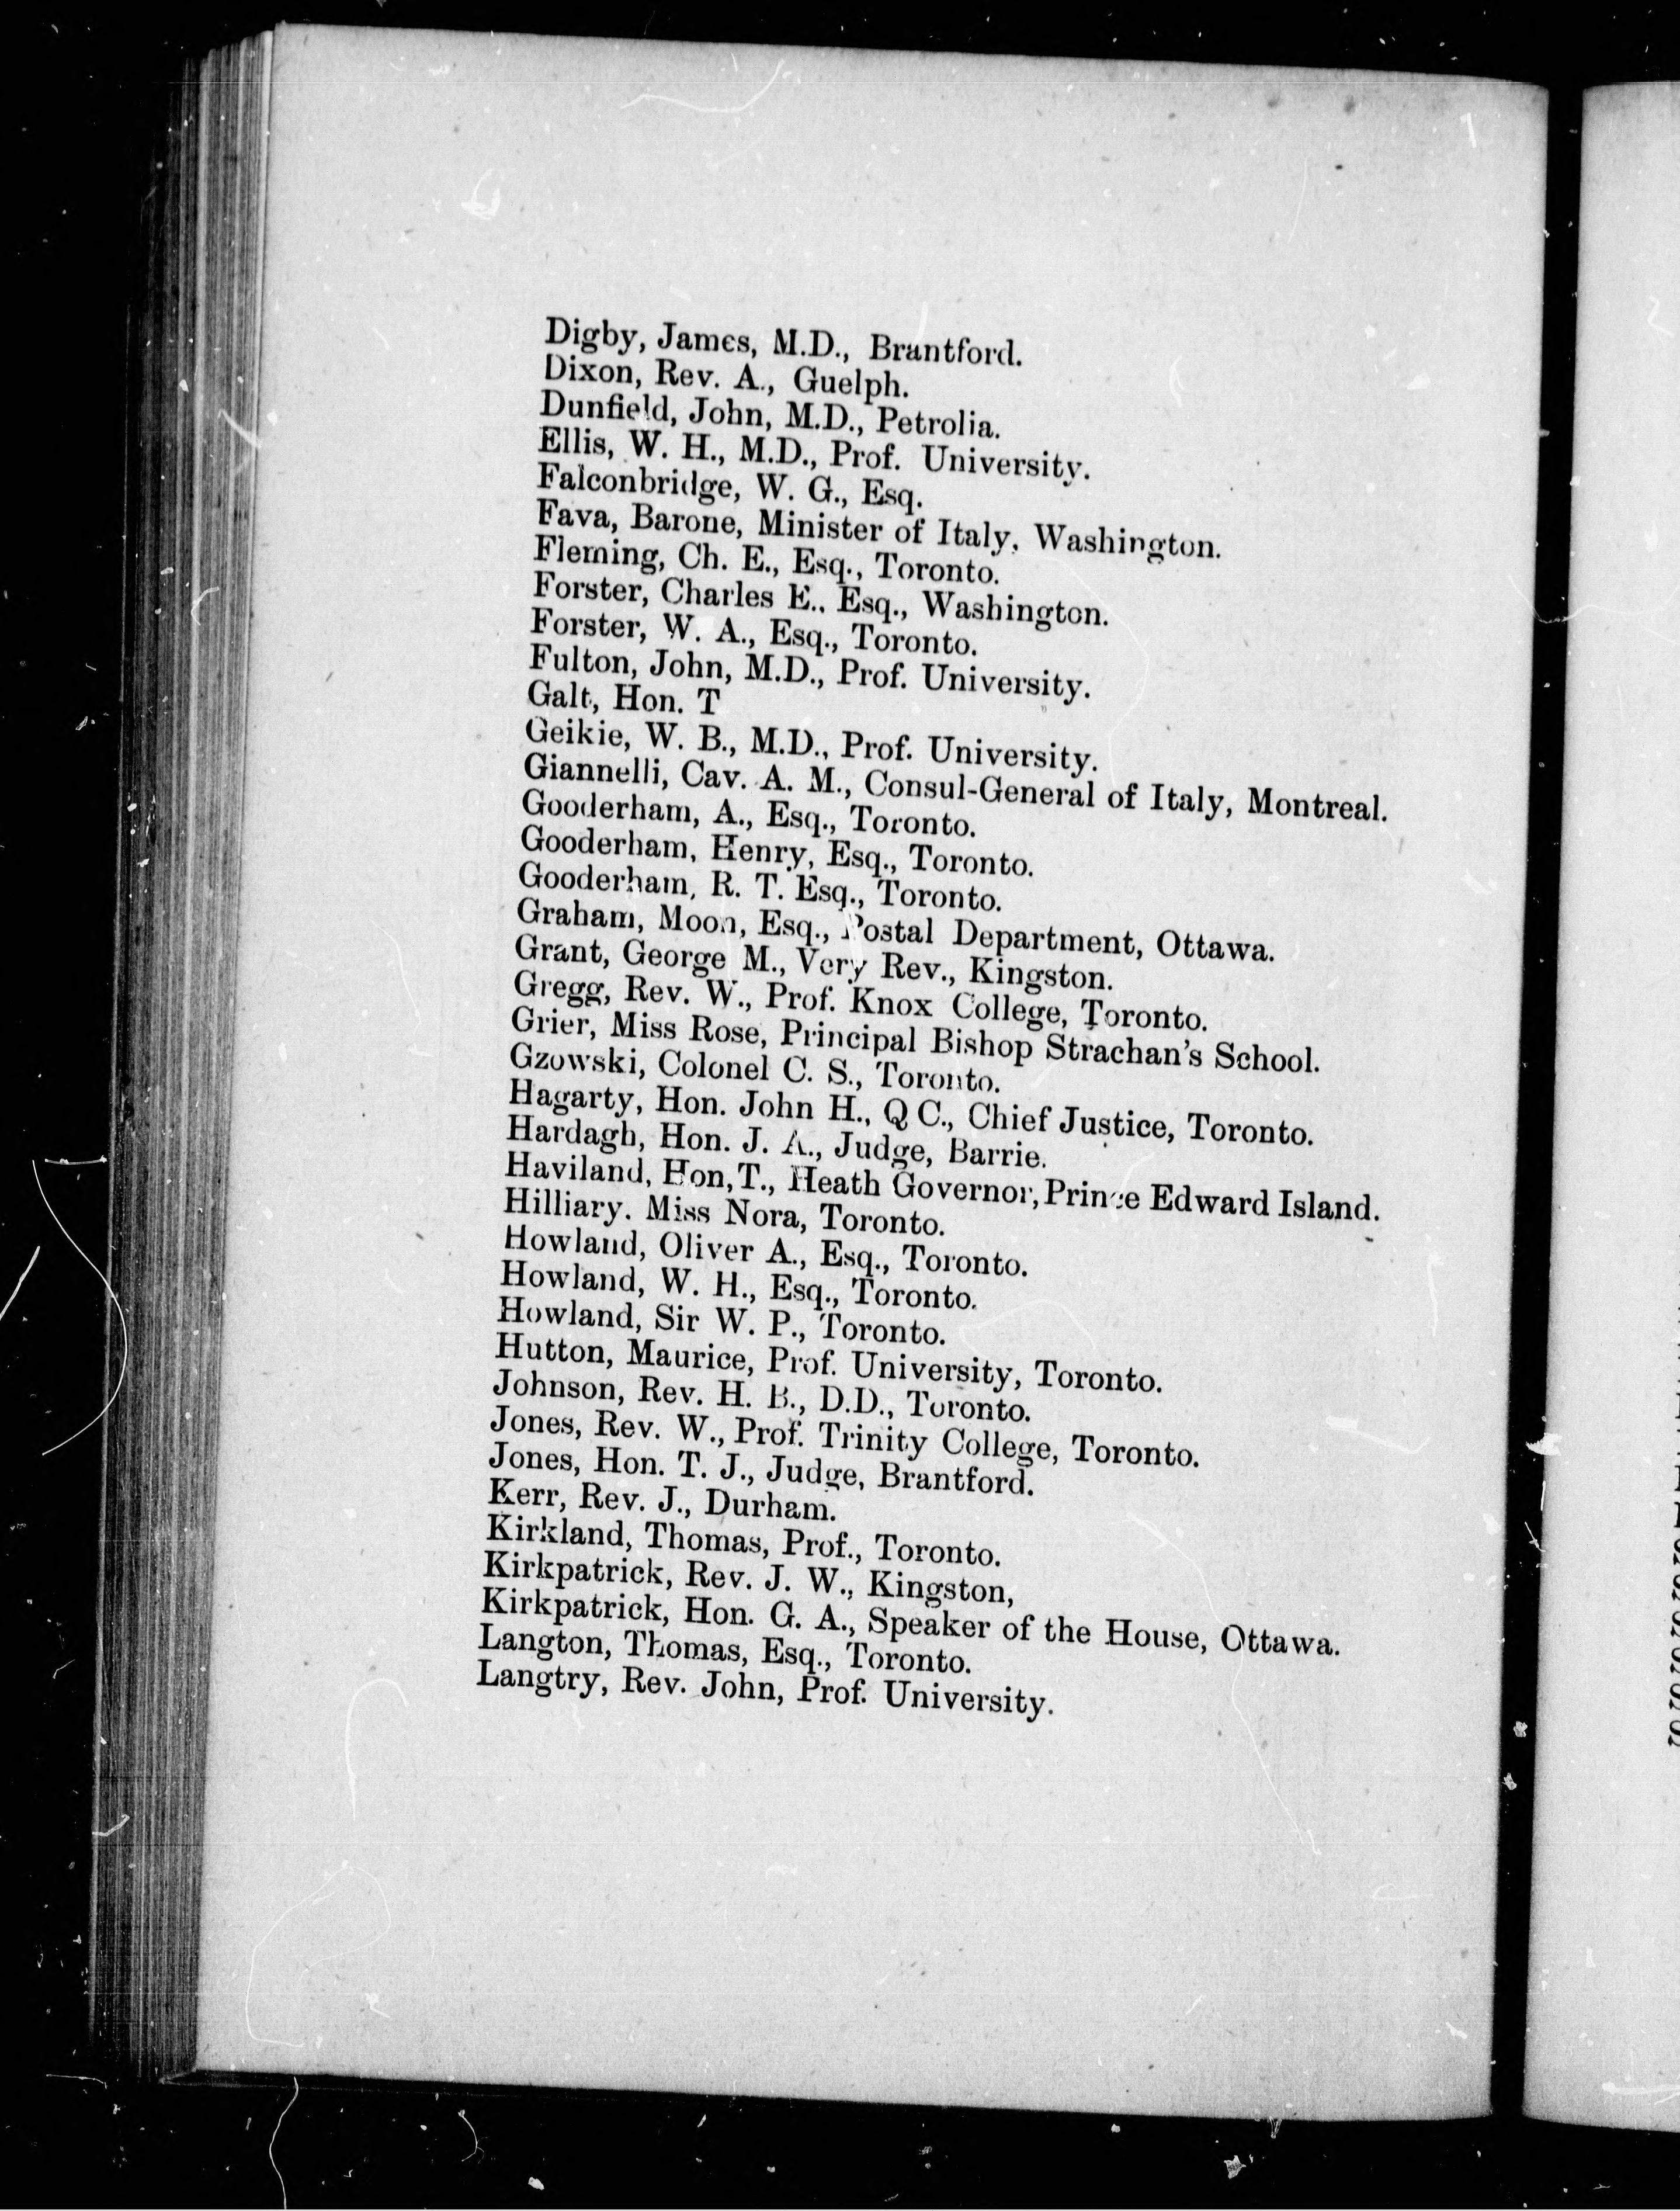 Digby, James, M.D., Brantford.
Dixon, Rev. A., Guelph.
Dunfield, John, M.D., Petrolia.
Ellis, W. H., M.D., Prof. University.
Falconbridge, W. G., Esq.
Fava, Barone, Minister of Italy, Washington.
Fleming, Ch. E., Esq., Toronto.
Forster, Charles E., Esq., Washington.
Forster, W. A., Esq., Toronto.
Fulton, John, M.D., Prof. University.
Galt, Hon. T
Geikie, W. B., M.D., Prof. University.
Giannelli, Cav. A. M., Consul-General of Italy, Montreal.
Gooderham, A., Esq., Toronto.
Gooderham, Henry, Esq., Toronto.
Gooderham, R. T. Esq., Toronto.
Graham, Moon, Esq., Postal Department, Ottawa.
Grant, George M., Very Rev., Kingston.
Gregg, Rev. W., Prof. Knox College, Toronto.
Grier, Miss Rose, Principal Bishop Strachan's School.
Gzowski, Colonel C. S., Toronto.
Hagarty, Hon. John H., Q C., Chief Justice, Toronto.
Hardagh, Hon. J. A., Judge, Barrie.
Haviland, Hon, T., Heath Governor, Prince Edward Island.
Hilliary. Miss Nora, Toronto.
Howland, Oliver A., Esq., Toronto.
Howland, W. H., Esq., Toronto.
Howland, Sir W. P., Toronto.
Hutton, Maurice, Prof. University, Toronto.
Johnson, Rev. H. B., D.D., Toronto.
Jones, Rev. W., Prof. Trinity College, Toronto.
Jones, Hon. T. J., Judge, Brantford.
Kerr, Rev. J., Durham.
Kirkland, Thomas, Prof., Toronto.
Kirkpatrick, Rev. J. W., Kingston,
Kirkpatrick, Hon. G. A., Speaker of the House, Ottawa.
Langton, Thomas, Esq., Toronto.
Langtry, Rev. John, Prof. University.